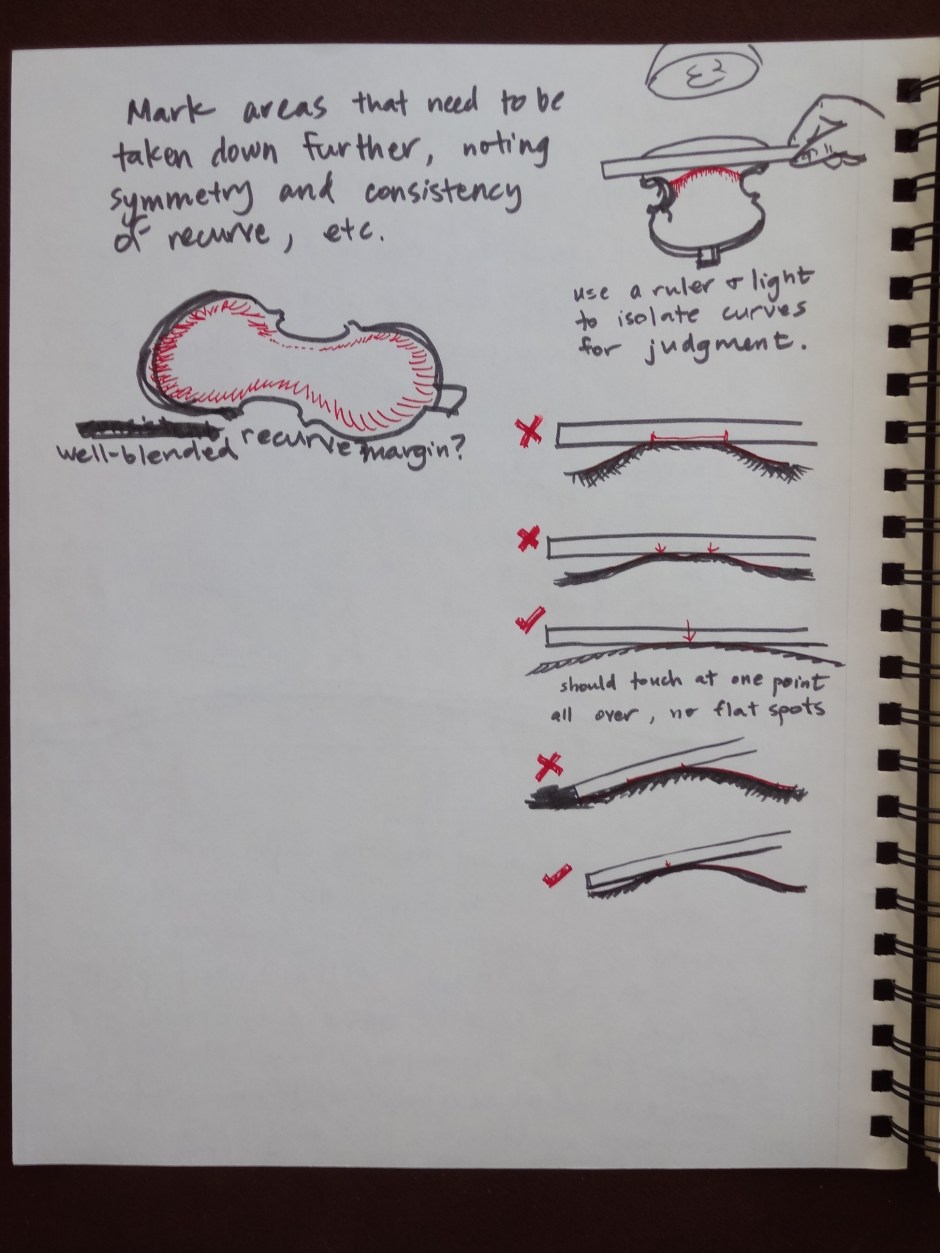 Mark areas that need to be
taken down further, noting
symmetry and consistency
of recurve, etc.
use a ruler + light
to isolate curves
for judgment.
well-blended recurve margin?
should touch at one point
all over, no flat spots